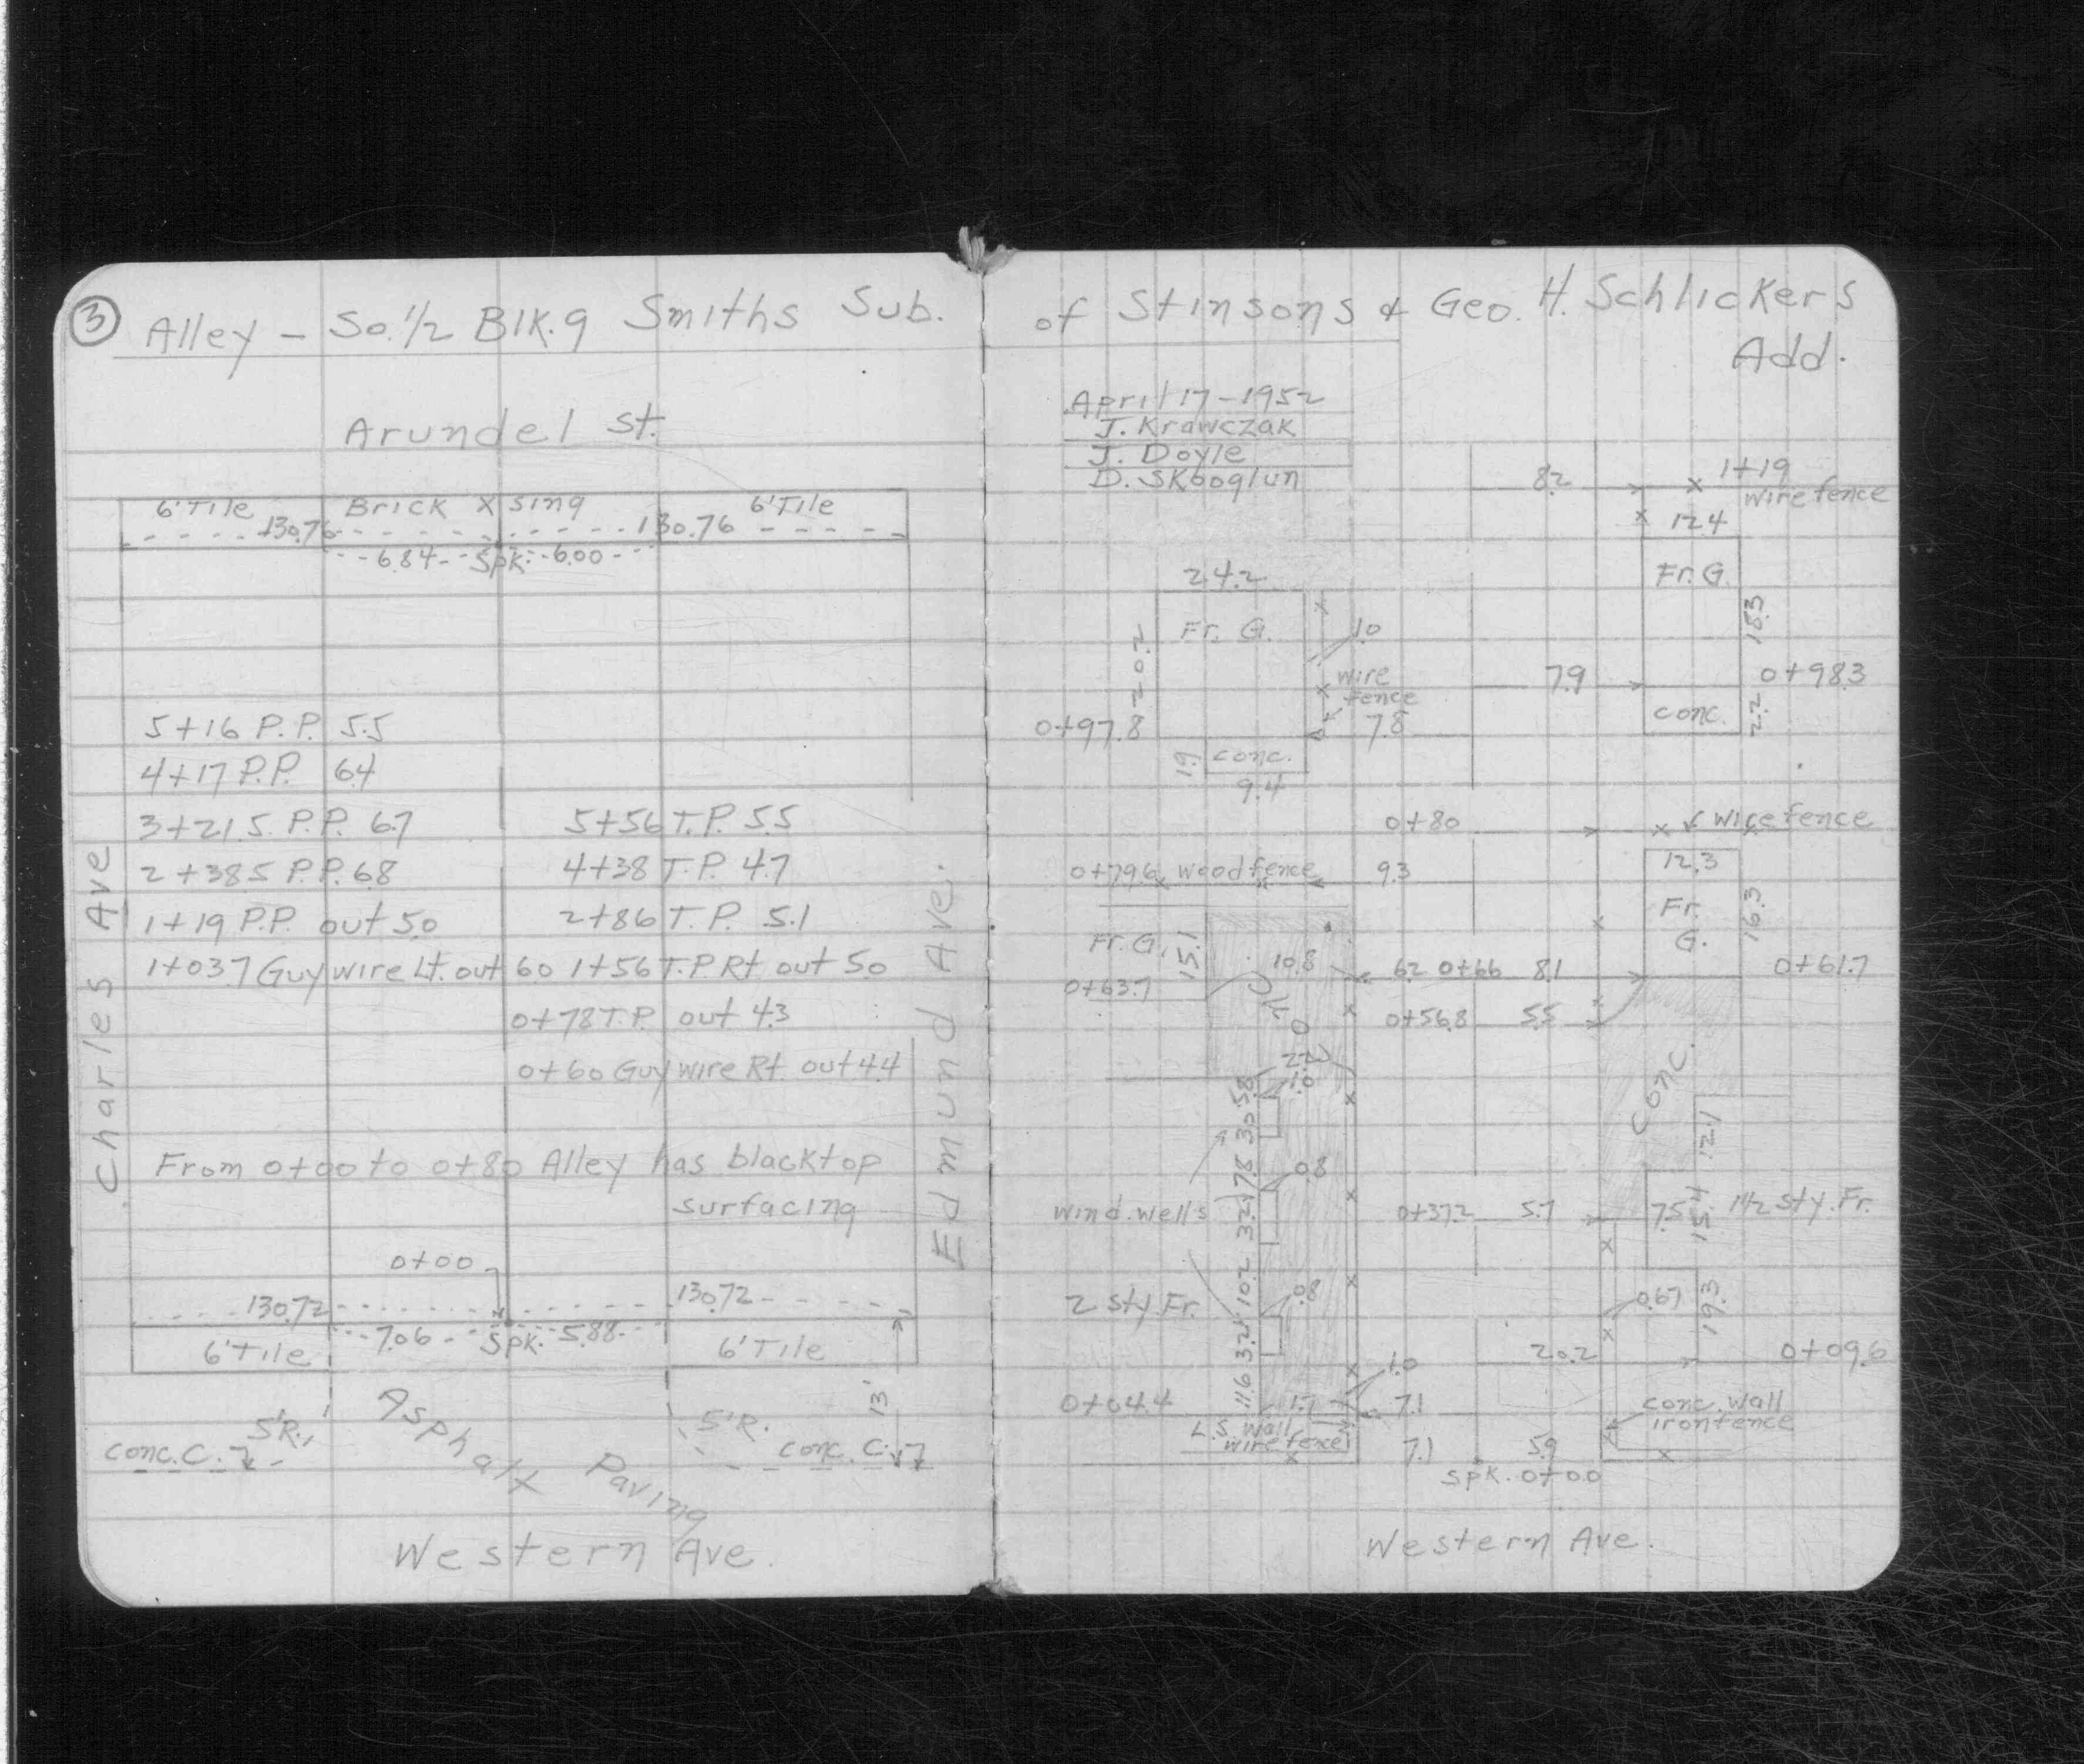 3
Alley - So. 1/2 Blk. 9 Smiths Sub.
Arundel St.
6' Tile Brick Xsing 6' Tile
130.76 130.76
6.84 Spk. 6.00
5+16 P.P. 5.5
4+17 P.P. 6.4
3+21.5 P.P. 6.7 5+56 T.P. 5.5
2+38.5 P.P. 6.8 4+38 T.P. 4.7
1+19 P.P. out 5.0 2+86 T.P. 5.1
1+03.7 Guy wire Lt. out 6.0 1+56 T.P. Rt out 5.0
0+78 T.P. out 4.3
0+60 Guy wire Rt. out 4.4
Charles Ave
Edmund Ave.
From 0+00 to 0+80 Alley has blacktop
surfacing
0+00
130.72 130.72
7.06 Spk. 5.88
6' Tile 6' Tile
5'R. 5'R. 13'
conc. C. conc. C.
Asphalt Paving
Western Ave.
of Stinsons & Geo. H. Schlickers
Add.
April 17-1952
J. Krawczak
J. Doyle
D. Skboglun
8.2 1+19
wire fence
12.4
24.2 Fr. G.
Fr. G. 20.2 1.0 18.3
wire
fence
7.9 0+98.3
0+97.8 7.8 conc. 2.2
1.9 conc.
9.4
0+80 wire fence
0+79.6 wood fence 9.3 12.3
Fr.
G. 16.3
Fr. G. 15.1 10.8
0+63.7 6.2 0+66 8.1 0+61.7
0+56.8 5.5
conc.
2.2
1.0
5.8
3.0
12.1
7.8 0.8
wind. wells 3.2 0+37.2 5.7 7.5 15.4 1 1/2 Sty. Fr.
10.2
2 Sty. Fr. 0.8 0.67 19.3
3.2 20.2 0+09.6
1.0
0+04.4 11.6 1.7 7.1 conc. wall
iron fence
L.S. Wall
wire fence 7.1 5.9
Spk. 0+00
Western Ave.